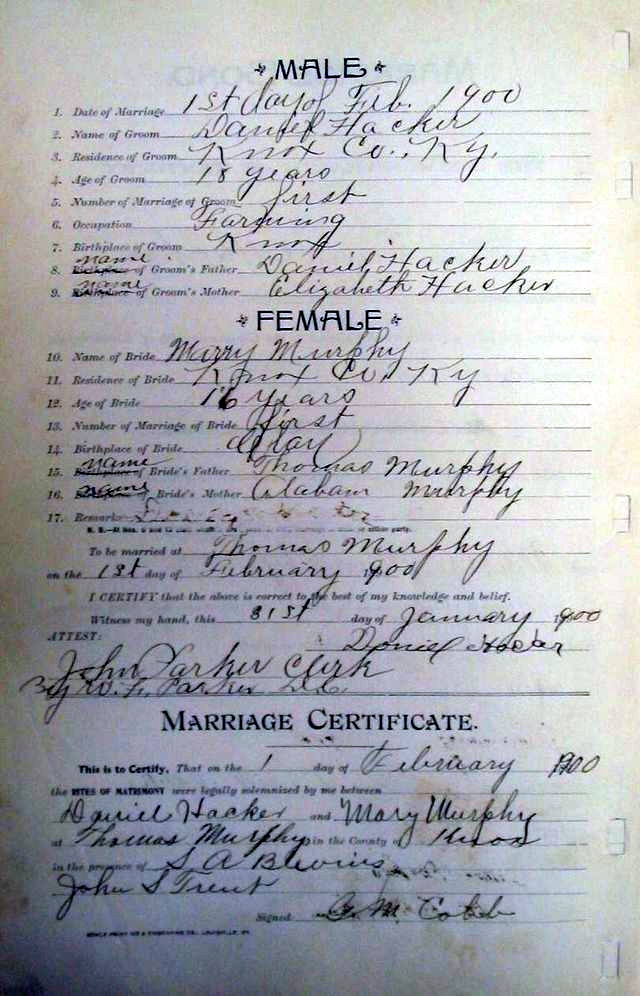 MALE
1. Date of Marriage 1st day of Feb. 1900
2. Name of Groom Daniel Hacker
3. Residence of Groom Knox Co., Ky.
4. Age of Groom 18 years
5. Number of Marriage of Groom first
6. Occupation Farming
7. Birthplace of Groom Knox
8. Birthplace name of Groom's Father Daniel Hacker
9. Birthplace name of Groom's Mother Elizabeth Hacker
FEMALE
10. Name of Bride Marry Murphy
11. Residence of Bride Knox Co. Ky
12. Age of Bride 16 years
13. Number of Marriage of Bride first
14. Birthplace of Bride Clay
15. Birthplace name of Bride's Father Thomas Murphy
16. Birthplace name of Bride's Mother Alabam Murphy
17. Remarks
To be married at Thomas Murphy
on the 1st day of February 1900
I CERTIFY that the above is correct to the best of my knowledge and belief.
Witness my hand, this 31st day of January 1900
ATTEST: Daniel Hacker
John Parker Clerk
By W. F. Parker D.C.
MARRIAGE CERTIFICATE.
This is to Certify, That on the 1 day of February 1900
the RITES OF MATRIMONY were legally solemnized by me between
Daniel Hacker and Mary Murphy
at Thomas Murphy in the County of Knox
in the presence of S A Bivins
John S Trent
Signed M. Cobb